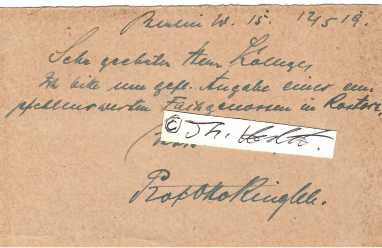 Berlin W. 15. 12 5 19.
Sehr geehrter Herr Kollege,
Ich bitte um gefl. Angabe eines em-
pfehlenswerten Fachgenossen in Rostock,
© Th.
Prof. Otto Ringleb.